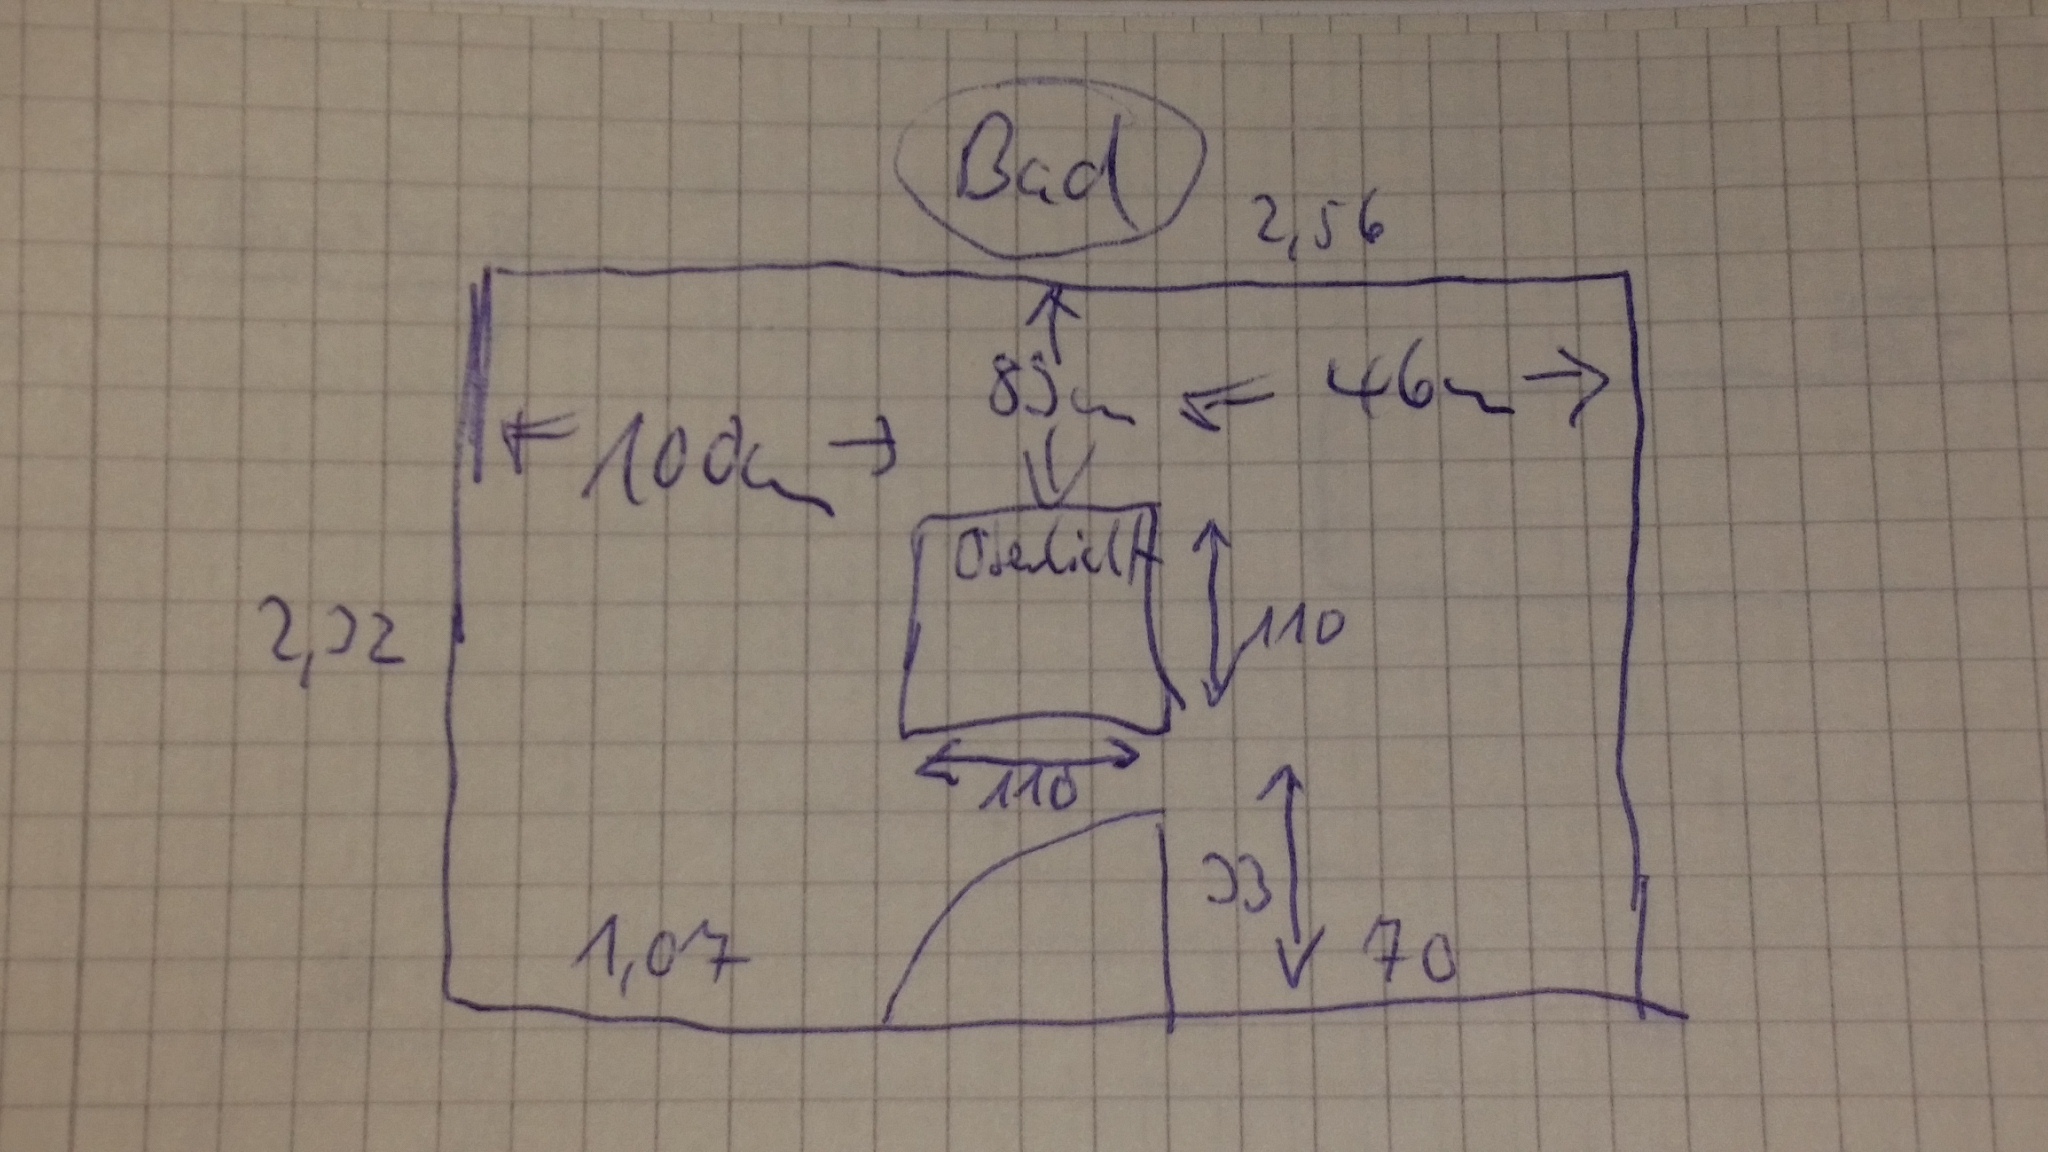 Bad
2,56
89cm
46cm
100cm
Oberlicht
110
2,32
110
33
1,07
70